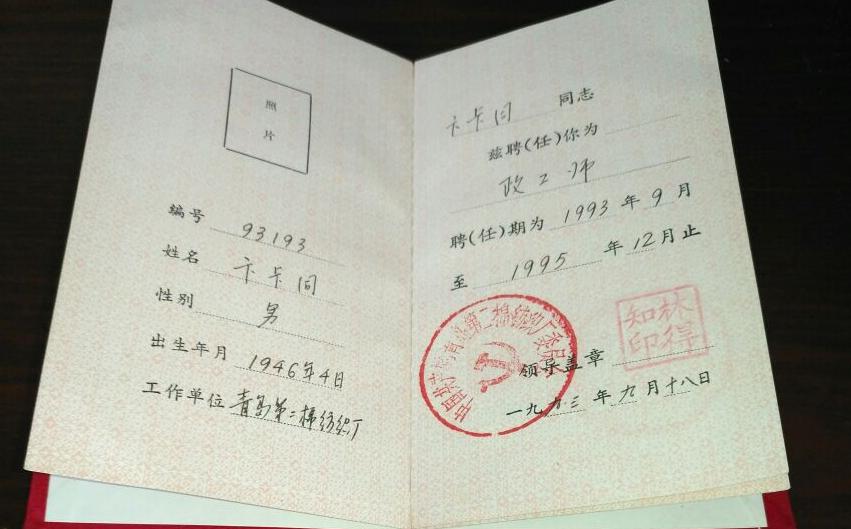 照
片
编号 93193
姓名 卞卡同
性别 男
出生年月 1946年4日
工作单位 青岛第二棉纺织厂
卞卡同 同志
兹聘(任)你为
政工师
聘(任)期为 1993 年 9 月
至 1995 年 12 月止
领导盖章
林得
知印
一九九三 年 九 月 十八 日